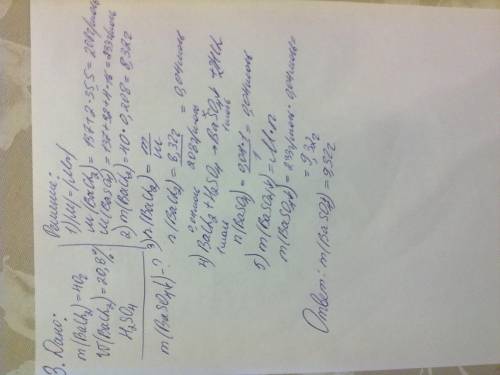 3. Дано:
m(BaCl₂)=40г
W(BaCl₂)=20,8%
H₂SO₄
m(BaSO₄↓)-?
Решение:
1) |M|=|Mr|
M(BaCl₂)=137+2·35,5=208г/моль
M(BaSO₄)=137+32+4·16=233г/моль
2) m(BaCl₂)=40·0,208=8,32г
3) n(BaCl₂)=m/M
n(BaCl₂)=8,32г/208г/моль=0,04моль
0,04моль
4) BaCl₂+H₂SO₄→BaSO₄↓+2HCl
1моль 1моль
n(BaSO₄)=0,04·1/1=0,04моль
5) m(BaSO₄↓)=M·n
m(BaSO₄↓)=233г/моль·0,04моль=
=9,32г
Ответ: m(BaSO₄)=9,32г